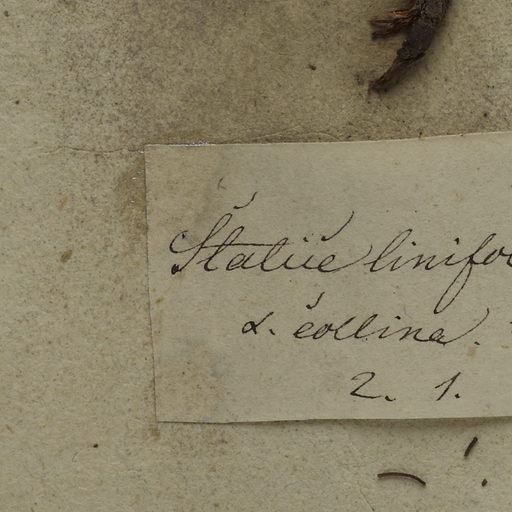 Statice linifo
α. collina.
2. 1.